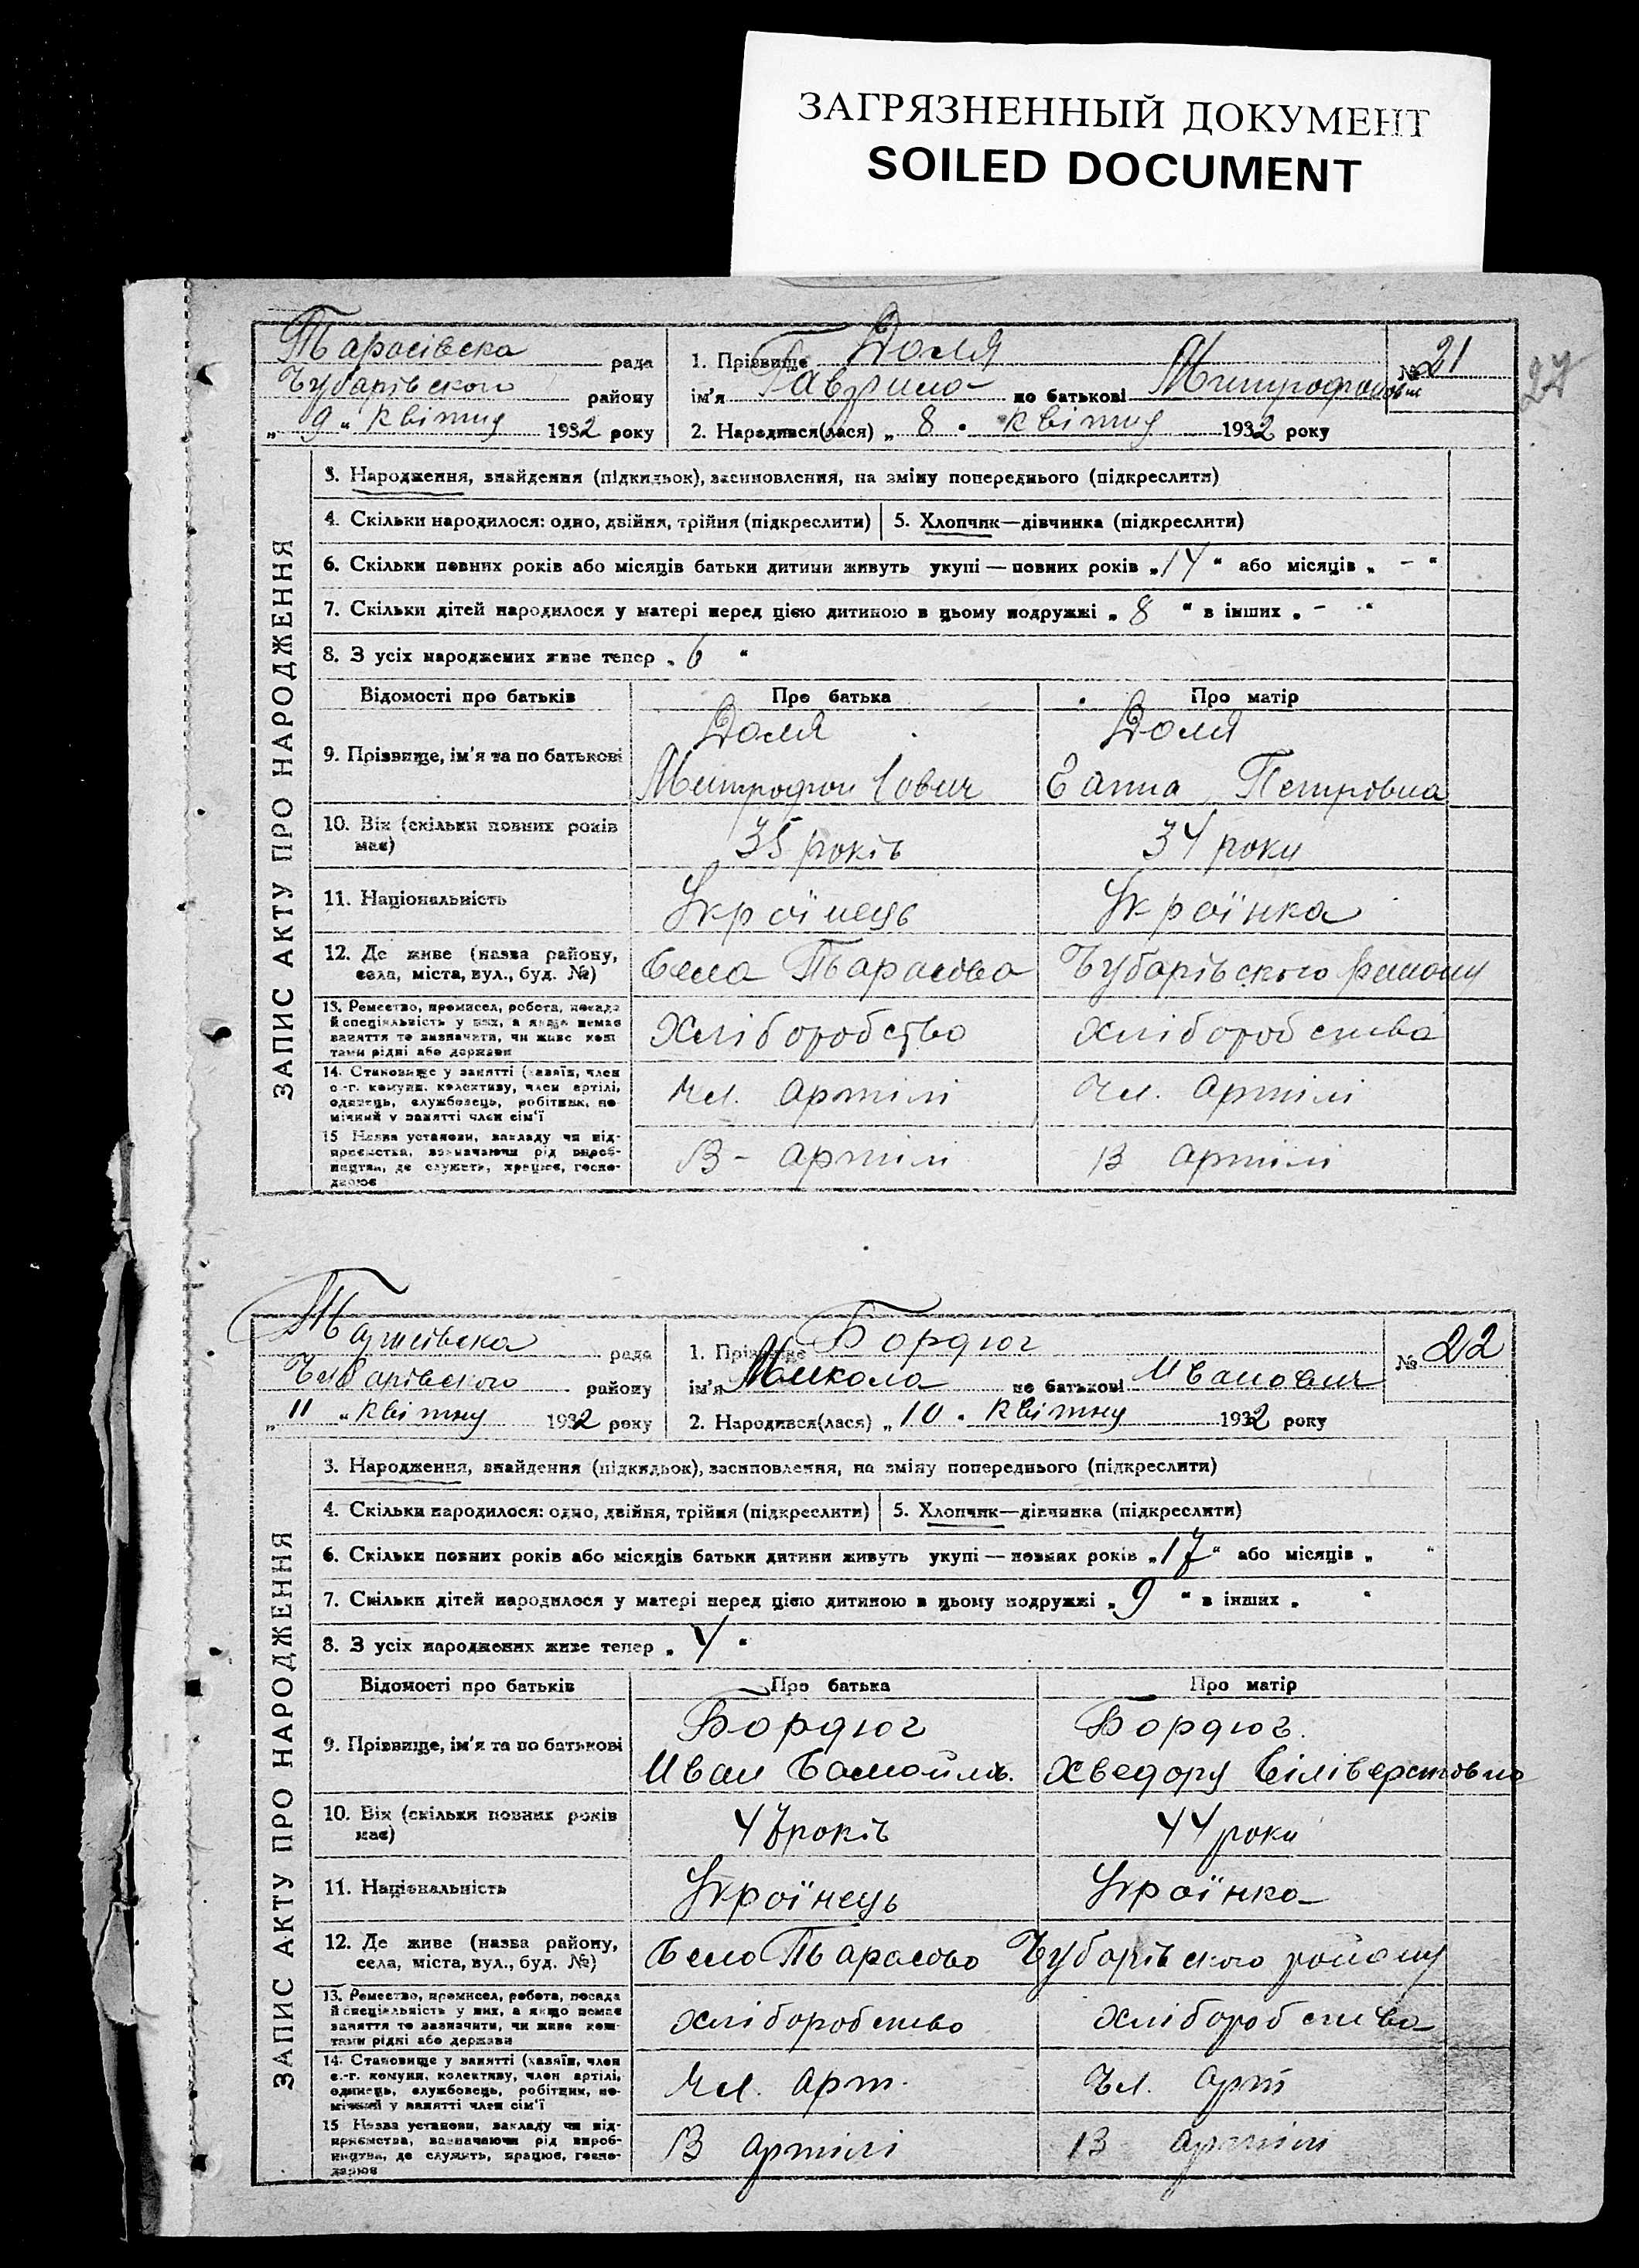 ЗАГРЯЗНЕННЫЙ ДОКУМЕНТ
SOILED DOCUMENT
27
Тарасівска рада
Чубарівского району
„ 9 " Квітня 1932 року
1. Прізвище Доля
ім'я Гаврило по батькові Митрофанович
№ 21
2. Народився(лася) „ 8 " Квітня 1932 року
ЗАПИС АКТУ ПРО НАРОДЖЕННЯ
3. Народження, знайдення (підкидьок), засиновлення, на зміну попереднього (підкреслити)
4. Скільки народилося: одно, двійня, трійня (підкреслити) 5. Хлопчик—дівчинка (підкреслити)
6. Скільки повних років або місяців батьки дитини живуть укупі — повних років „ 14 " або місяців „ - "
7. Скільки дітей народилося у матері перед цією дитиною в цьому подружжі „ 8 " в інших „ - "
8. З усіх народжених живе тепер „ 6 "
Відомості про батьків Про батька Про матір
9. Прізвище, ім'я та по батькові
Доля Доля
Митрофон Ганна Петровна
10. Вік (скільки повних років має) 35 років 34 роки
11. Національність Українець Українка
12. Де живе (назва району, села, міста, вул., буд. №) Село Тарасовка Чубарівського району
13. Ремество, промисел, робота, посада
й спеціяльність у них, а якщо немає
заняття то зазначити, чи живе кош
тами рідні або держави
Хліборобство хліборобство
14. Становище у занятті (хазяїн, член
с.-г. комуни, колективу, член артілі,
одинець, службовець, робітник, по
мічний у занятті член сім'ї
Чл. артілі Чл. артілі
15 Назва установи, закладу чи під-
приємства, зазначаючи рід вироб-
ництва, де служить, працює, госпо-
дарює
В - артілі В артілі
Тарасівска рада
Чубарівского району
„ 11 " Квітну 1932 року
1. Прізвище Бордюг
ім'я Микола по батькові Иванович
№ 22
2. Народився(лася) „ 10 " Квітну 1932 року
ЗАПИС АКТУ ПРО НАРОДЖЕННЯ
3. Народження, знайдення (підкидьок), засиновлення, на зміну попереднього (підкреслити)
4. Скільки народилося: одно, двійня, трійня (підкреслити) 5. Хлопчик—дівчинка (підкреслити)
6. Скільки повних років або місяців батьки дитини живуть укупі — повних років „ 17 " або місяців „ "
7. Скільки дітей народилося у матері перед цією дитиною в цьому подружжі „ 9 " в інших „ "
8. З усіх народжених живе тепер „ 4 "
Відомості про батьків Про батька Про матір
9. Прізвище, ім'я та по батькові
Бордюг Бордюг.
Иван Самойлов. Хведору Сіліверстовна
10. Вік (скільки повних років має) 47 років 44 роки
11. Національність Українець Українка
12. Де живе (назва району, села, міста, вул., буд. №) Село Тарасово Чубарівського району
13. Ремество, промисел, робота, посада
й спеціяльність у них, а якщо немає
заняття то зазначити, чи живе кош-
тами рідні або держави
хліборобство хліборобство
14. Становище у занятті (хазяїн, член
с.-г. комуни, колективу, член артілі,
одинець, службовець, робітник, по-
мічний у занятті член сім'ї
Чл. арт. Чл. арт
15 Назва установи, закладу чи під-
приємства, зазначаючи рід вироб-
ництва, де служить, працює, госпо-
дарює
В артілі В артілі